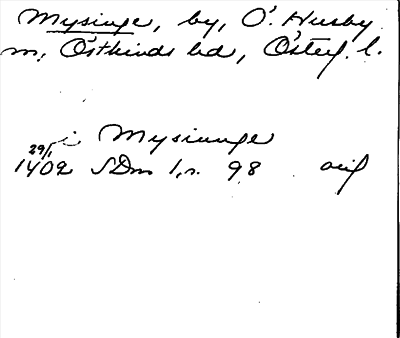 Mysinge, by, Ö. Husby
sn, Östkinds hd, Österg. l.
i Mysiunge
29/1 1402 SDns 1, s. 98 orig